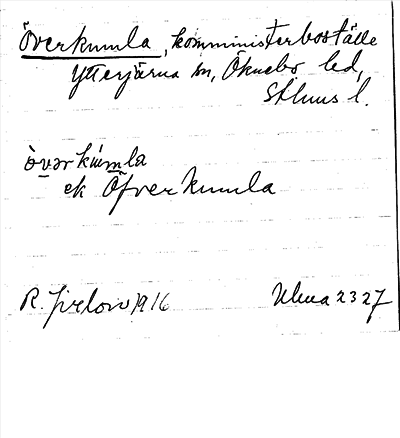 Överkumla, komministerboställe
Ytterjärna sn, Öknebo hd,
Sthlms l.
òvərkùmla
ek Öfverkumla
R. Jirlow 1916
Ulma 2327